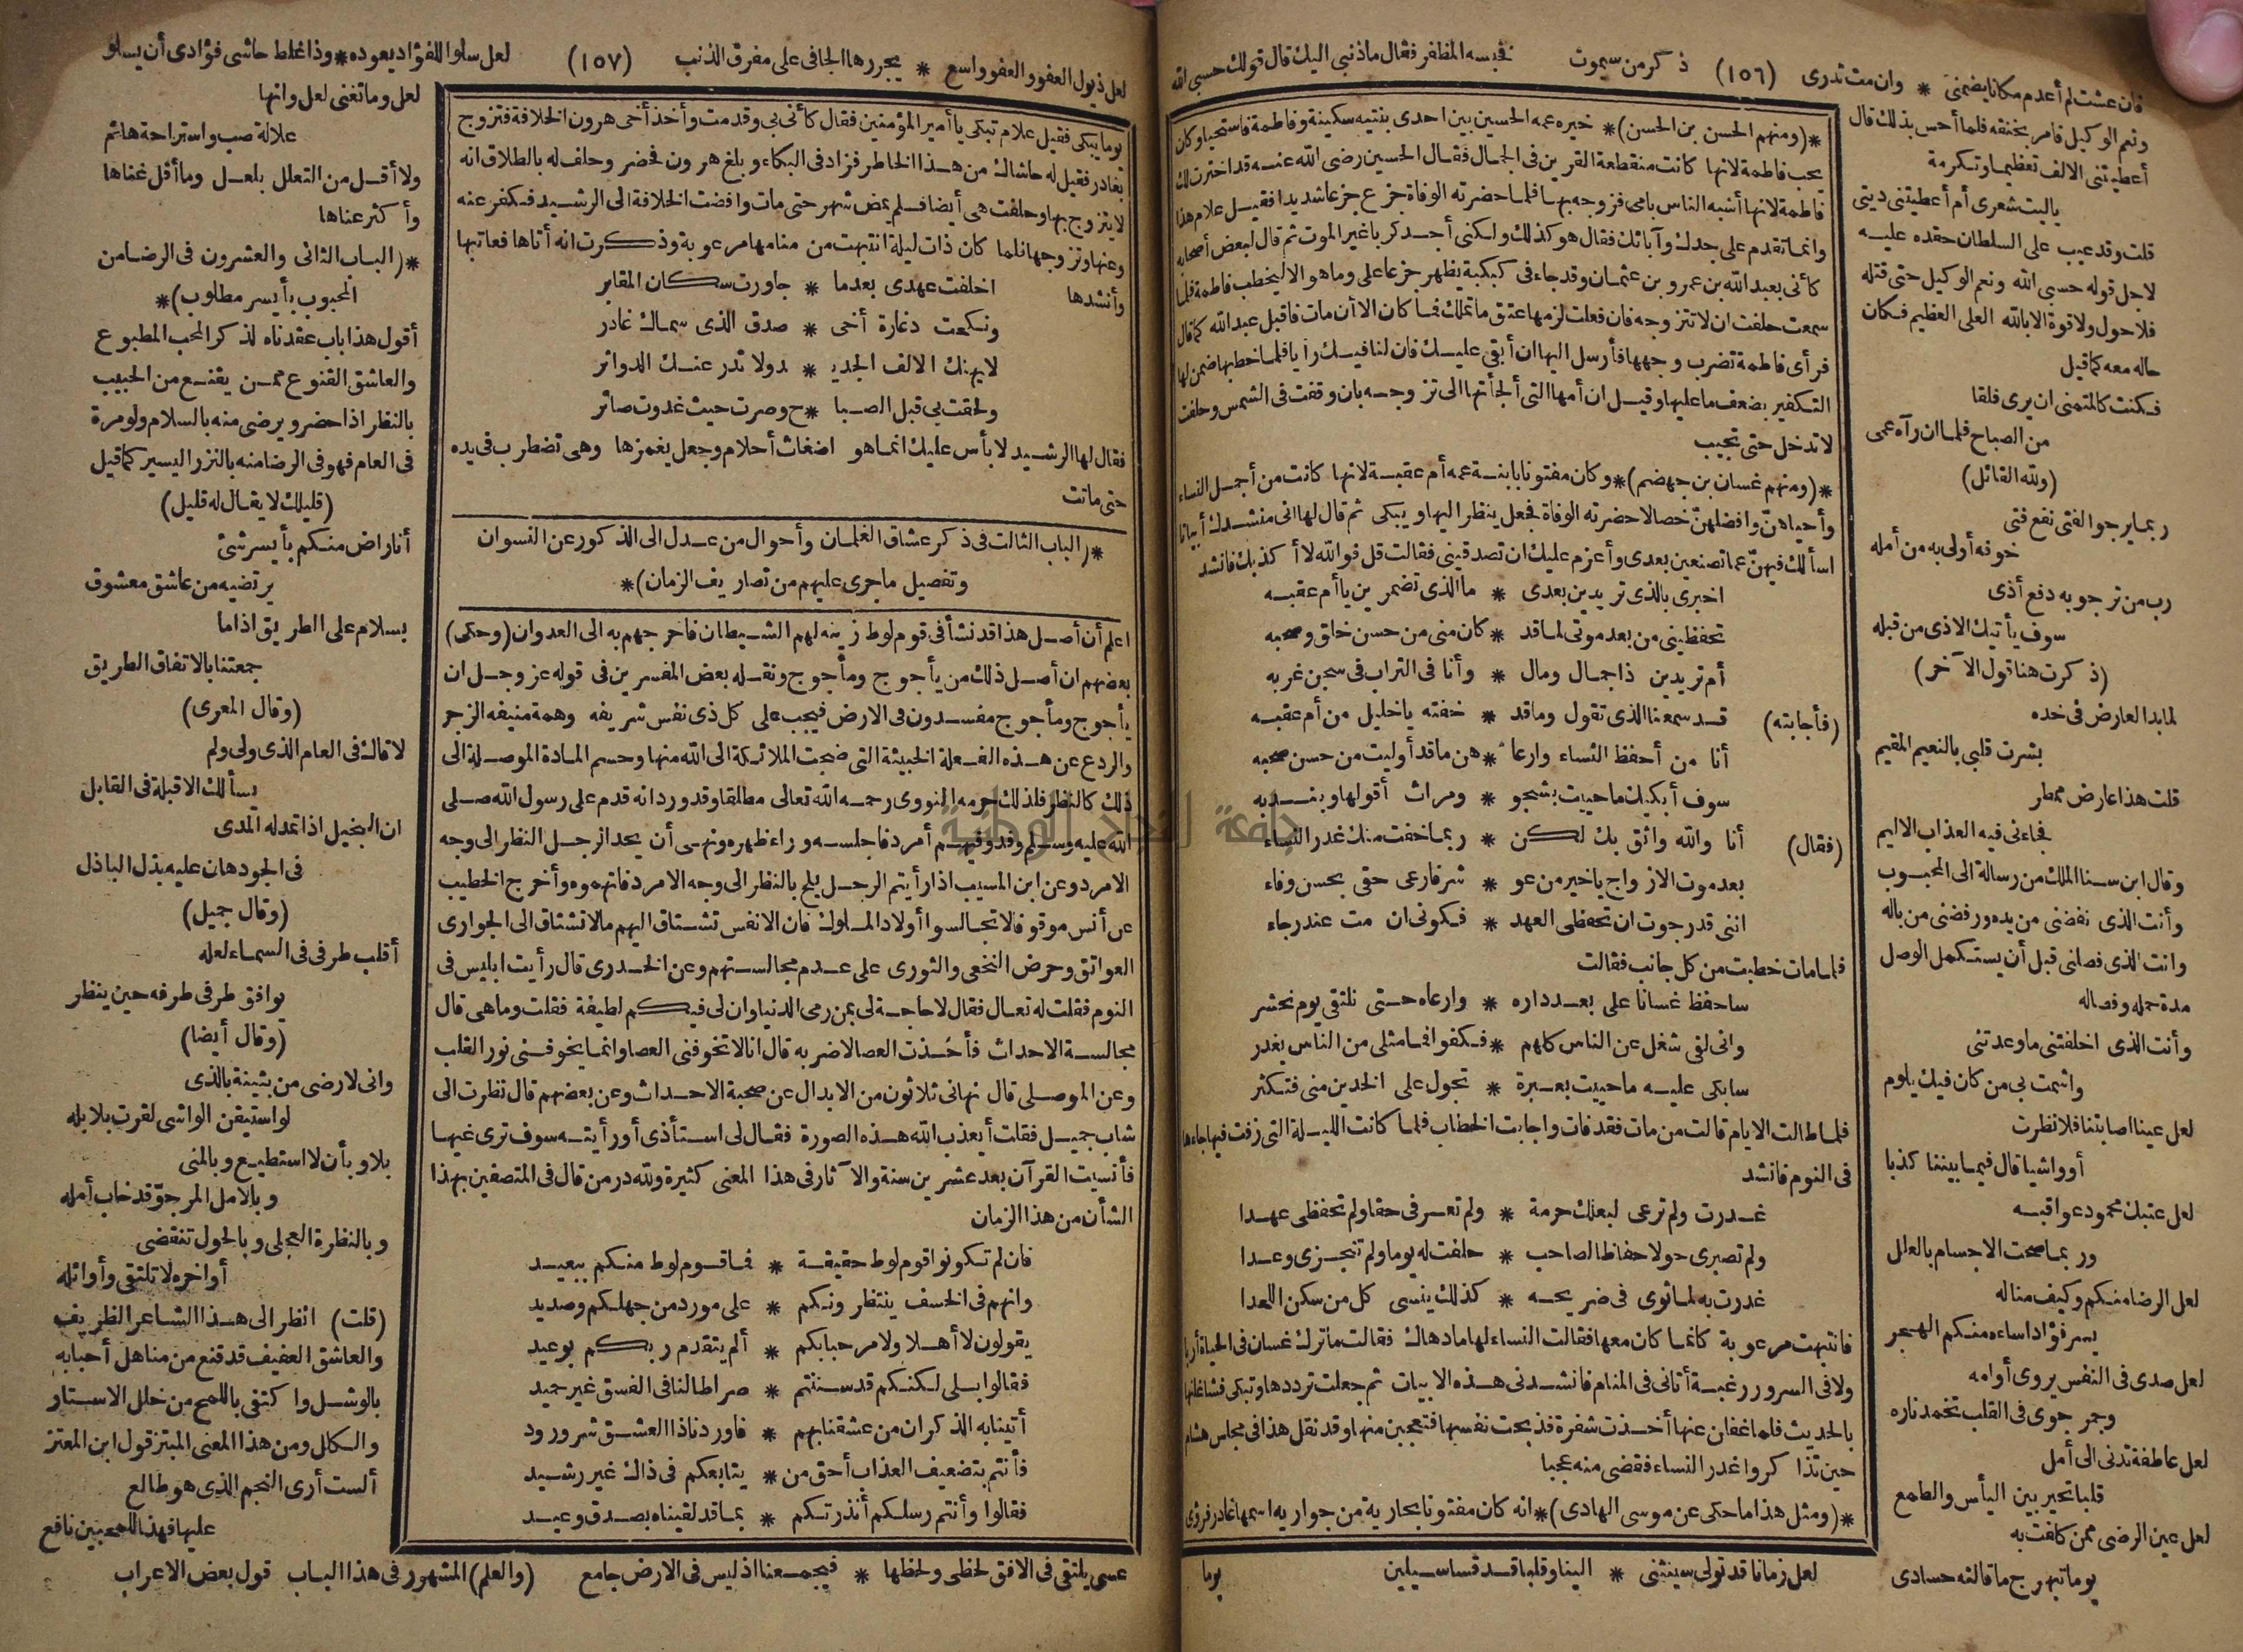 فان عشت لم أعدم مكانا يضمني * وان مت تدرى (١٥٦) ذكر من سيموت فحبسه المظفر فقال ماذنبى اليك قال قولك حسبى الله
ونعم الوكيل فامر بخنقه فلما أحس بذلك قال
أعطيتنى الالف تعظيما وتكرمة
ياليت شعرى أم أعطيتنى ديتى
قلت وقد عيب على السلطان حقده عليه
لاجل قوله حسبى الله ونعم الوكيل حتى قتله
فلا حول ولا قوة الا بالله العلى العظيم فكان
حاله معه كما قيل
فكنت كالمتمنى ان يرى فلقا
من الصباح فلما ان رآه عمى
(ولله القائل)
ربما يرجو الفتى نفع فتى
خوفه أولى به من أمله
رب من ترجو به دفع أذى
سوف يأتيك الاذى من قبله
(ذكرت هنا قول الآخر)
لما بدا العارض فى خده
بشرت قلبى بالنعيم المقيم
قلت هذا عارض ممطر
فجاءنى فيه العذاب الاليم
وقال ابن سنا الملك من رسالة الى المحبوب
وأنت الذى نفضنى من يده ورفضنى من باله
وانت الذى فصلنى قبل أن يستكمل الوصل
مدة حمله وفصاله
وأنت الذى اخلفتنى ما وعدتنى
واشمت بى من كان فيك يلوم
لعل عينا اصابتنا فلا نظرت
أو واشيا قال فيما بيننا كذبا
لعل عتبك محمود عواقبه
وربما صحت الاجسام بالعلل
لعل الرضا منكم وكيف مناله
يسر فؤادا ساءه منكم الهجر
لعل صدى فى النفس يروى أوامه
وجمر جوى فى القلب تخمد ناره
لعل عاطفة تدنى الى أمل
قلبا تحير بين اليأس والطمع
لعل عين الرضى ممن كلفت به
يوما تبهرج ما قالته حسادى
*(ومنهم الحسن بن الحسن)* خيره عمه الحسين بين احدى بنتيه سكينة وفاطمة فاستحيا وكان
يحب فاطمة لانها كانت منقطعة القرين فى الجمال فقال الحسين رضى الله عنه قد اخترت لك
فاطمة لانها أشبه الناس بامى فزوجه بها فلما حضرته الوفاة جزع جزعا شديدا فقيل علام هذا
وانما تقدم على جدك وآبائك فقال هو كذلك ولكنى أجد كربا غير الموت ثم قال لبعض أصحابه
كأنى بعبد الله بن عمرو بن عثمان وقد جاء فى كبكبة يظهر جزعا على وما هو الا ليخطب فاطمة فلما
سمعت حلفت ان لا تتزوجه فان فعلت لزمها عتق ما تملك فما كان الا أن مات فاقبل عبد الله كما قال
فرأى فاطمة تضرب وجهها فأرسل اليها ان أبقى عليك فان لنا فيك رأيا فلما خطبها ضمن لها
التكفير بضعف ما عليها وقيل ان أمها التى ألجأتها الى تزوجه بان وقفت فى الشمس وحلفت
لا تدخل حتى تجيب
*(ومنهم غسان بن جهضم)* وكان مفتونا بابنة عمه أم عقبة لانها كانت من أجمل النساء
وأحياهن وافضلهن خصالا حضرته الوفاة فجعل ينظر اليها ويبكى ثم قال لها انى منشدك أبياتا
اسألك فيهن عما تصنعين بعدى وأعزم عليك ان تصدقينى فقالت قل فوالله لا أكذبك فانشد
اخبرى بالذى تريدين بعدى * ما الذى تضمرين يا أم عقبه
تحفظينى من بعد موتى لما قد * كان منى من حسن خلق وصحبه
أم تريدين ذا جمال ومال * وأنا فى التراب فى سجن غربه
(فأجابته) قد سمعنا الذى تقول وما قد * خفته يا خليل من أم عقبه
أنا من أحفظ النساء وارعا * هن ما قد أوليت من حسن صحبه
سوف أبكيك ما حييت بشجو * ومراث أقولها وبندبه
(فقال) أنا والله واثق بك لكن * ربما خفت منك غدر النساء
بعد موت الازواج يا خير من عو * شر فارعى حقى بحسن وفاء
اننى قد رجوت ان تحفظى العهد * فكونى ان مت عند رجاء
فلما مات خطبت من كل جانب فقالت
ساحفظ غسانا على بعد داره * وارعاه حتى نلتقى يوم نحشر
وانى لفى شغل عن الناس كلهم * فكفوا فما مثلى من الناس يغدر
سابكى عليه ما حييت بعبرة * تجول على الخدين منى فتكثر
فلما طالت الايام قالت من مات فقد فات واجابت الخطاب فلما كانت الليلة التى زفت فيها جاءها
فى النوم فانشد
غدرت ولم ترعى لبعلك حرمة * ولم تعرفى حقا ولم تحفظى عهدا
ولم تصبرى حولا حفاظا لصاحب * حلفت له يوما ولم تنجزى وعدا
غدرت به لما ثوى فى ضريحه * كذلك ينسى كل من سكن اللحدا
فانتبهت مرعوبة كانما كان معها فقالت النساء لها مادهاك فقالت ما ترك غسان فى الحياة أربا
ولا فى السرور رغبة أتانى فى المنام فانشدنى هذه الابيات ثم جعلت ترددها وتبكى فشاغلنها
بالحديث فلما غفلن عنها أخذت شفرة فذبحت نفسها فتعجبن منها وقد نقل هذا فى مجلس هشام
حين تذاكروا غدر النساء فقضى منه عجبا
*(ومثل هذا ما حكى عن موسى الهادى)* انه كان مفتونا بجارية من جواريه اسمها غادر فرؤى
لعل زمانا قد تولى سينثنى * الينا وقلبا قد قسا سيلين
يوما
لعل ذيول العفو والعفو واسع * يجررها الجافى على مفرق الذنب (١٥٧) لعل سلوا للفؤاد يعوده * وذا غلط حاشى فؤادى أن يسلو
يوما يبكى فقيل علام تبكى يا أمير المؤمنين فقال كأنى بى وقد مت وأخذ أخى هرون الخلافة فتزوج
بغادر فقيل له حاشاك من هذا الخاطر فزاد فى البكاء وبلغ هرون فحضر وحلف له بالطلاق انه
لا يتزوج بها وحلفت هى أيضا فلم يمض شهر حتى مات وافضت الخلافة الى الرشيد فكفر عنه
وعنها وتزوجها فلما كان ذات ليلة انتبهت من منامها مرعوبة وذكرت انه أتاها فعاتبها
وأنشدها
اخلفت عهدى بعدما * جاورت سكان المقابر
ونكحت دغارة أخى * صدق الذى سماك غادر
لا يهنك الالف الجديد * د ولا تدر عنك الدوائر
ولحقت بى قبل الصبا * ح وصرت حيث غدوت صائر
فقال لها الرشيد لا بأس عليك انما هو اضغاث أحلام وجعل يغمزها وهى تضطرب فى يده
حتى ماتت
*(الباب الثالث فى ذكر عشاق الغلمان وأحوال من عدل الى الذكور عن النسوان
وتفصيل ما جرى عليهم من تصاريف الزمان)*
اعلم أن أصل هذا قد نشأ فى قوم لوط زينه لهم الشيطان فاخرجهم به الى العدوان (وحكى)
بعضهم ان أصل ذلك من يأجوج ومأجوج ونقله بعض المفسرين فى قوله عز وجل ان
يأجوج ومأجوج مفسدون فى الارض فيجب على كل ذى نفس شريفه وهمة منيفه الزجر
والردع عن هذه الفعلة الخبيثة التى ضجت الملائكة الى الله منها وحسم المادة الموصلة الى
ذلك كالنظر فلذلك حرمه النووى رحمه الله تعالى مطلقا وقد ورد انه قدم على رسول الله صلى
الله عليه وسلم وفد وفيهم أمرد فاجلسه وراء ظهره ونهى أن يحد الرجل النظر الى وجه
الامرد وعن ابن المسيب اذا رأيتم الرجل يلح بالنظر الى وجه الامرد فاتهموه وأخرج الخطيب
عن أنس موقوفا لا تجالسوا أولاد الملوك فان الانفس تشتاق اليهم مالا تشتاق الى الجوارى
العواتق وحرض النخعى والثورى على عدم مجالستهم وعن الخدرى قال رأيت ابليس فى
النوم فقلت له تعال فقال لا حاجة لى بمن رمى الدنيا وان لى فيكم لطيفة فقلت وما هى قال
مجالسة الاحداث فأخذت العصا لاضربه قال انا لا تخوفنى العصا وانما يخوفنى نور القلب
وعن الموصلى قال نهانى ثلاثون من الابدال عن صحبة الاحداث وعن بعضهم قال نظرت الى
شاب جميل فقلت أيعذب الله هذه الصورة فقال لى استأذى أو رأيته سوف ترى غبها
فأنسيت القرآن بعد عشرين سنة والآثار فى هذا المعنى كثيرة ولله در من قال فى المتصفين بهذا
الشأن من هذا الزمان
فان لم تكونوا قوم لوط حقيقة * فما قوم لوط منكم ببعيد
وانهم فى الخسف ينتظرونكم * على مورد من جهلكم وصديد
يقولون لا أهلا ولا مرحبا بكم * ألم يتقدم ربكم بوعيد
فقالوا بلى لكنكم قد سننتم * صراطا لنا فى الفسق غير حميد
أتينا به الذكران من عشقنا بهم * فاوردنا ذا العشق شر ورود
فأنتم بتضعيف العذاب أحق من * يتابعكم فى ذاك غير رشيد
فقالوا وأنتم رسلكم أنذرتكم * بما قد لقيناه بصدق وعيد
لعل وما تغنى لعل وانها
علالة صب واستراحة هائم
ولا أقل من التعلل بلعل وما أقل غناها
وأكثر عناها
*(الباب الثانى والعشرون فى الرضا من
المحبوب بأيسر مطلوب)*
أقول هذا باب عقدناه لذكر المحب المطبوع
والعاشق القنوع ممن يقنع من الحبيب
بالنظر اذا حضر ويرضى منه بالسلام ولو مرة
فى العام فهو فى الرضا منه بالنزر اليسير كما قيل
(قليلك لا يقال له قليل)
أنا راض منكم بأيسر شئ
يرتضيه من عاشق معشوق
بسلام على الطريق اذا ما
جمعتنا بالاتفاق الطريق
(وقال المعرى)
لاقاك فى العام الذى ولى ولم
يسألك الا قبلة فى القابل
ان البخيل اذا تمد له المدى
فى الجود هان عليه بذل الباذل
(وقال جميل)
أقلب طرفى فى السماء لعله
يوافق طرفى طرفه حين ينظر
(وقال أيضا)
وانى لارضى من بثينة بالذى
لو استيقن الواشى لقرت بلابله
بلا وبأن لا استطيع وبالمنى
وبالامل المرجوّ قد خاب أمله
وبالنظرة العجلى وبالحول تنقضى
أواخره لا تلتقى وأوائله
(قلت) انظر الى هذا الشاعر الظريف
والعاشق العفيف قد قنع من مناهل أحبابه
بالوشل واكتفى باللمح من خلل الاستار
والكلل ومن هذا المعنى المبتز قول ابن المعتز
ألست أرى النجم الذى هو طالع
عليها فهذا للمحبين نافع
عسى يلتقى فى الافق لحظى ولحظها * فيجمعنا اذ ليس فى الارض جامع (والعلم) المشهور فى هذا الباب قول بعض الاعراب
جامعة النجاح الوطنية